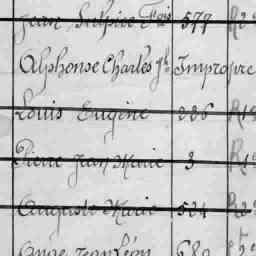 Jean Sulpice Fçois 577
Alphonse Charles Jh Impropre
Louis Eugène 226
Pierre Jean Marie 3
Auguste Marie 504
Ange Jean Léon 680